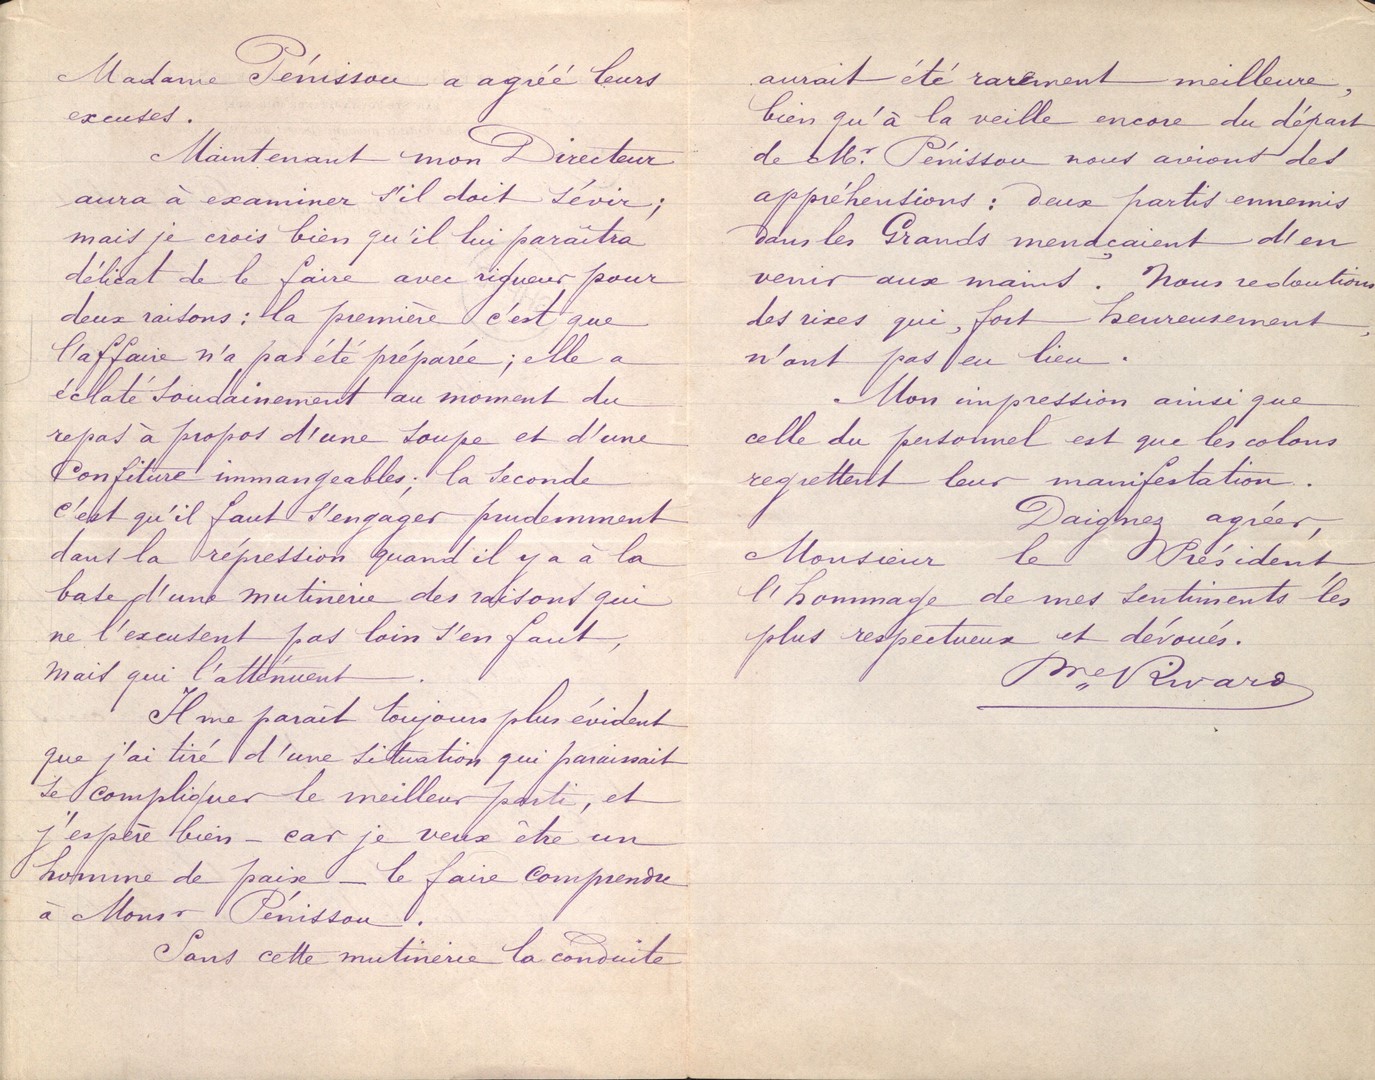 Madame Pénissou a agréé leurs
excuses.
Maintenant mon Directeur
aura à examiner s'il doit sévir;
mais je crois bien qu'il lui paraîtra
délicat de le faire avec rigueur pour
deux raisons: la première c'est que
l'affaire n'a pas été préparée; elle a
éclaté soudainement au moment du
repas à propos d'une soupe et d'une
confiture immangeables; la seconde
c'est qu'il faut s'engager prudemment
dans la répression quand il y a à la
base d'une mutinerie des raisons qui
ne l'excusent pas loin s'en faut,
mais qui l'atténuent.
Il me paraît toujours plus évident
que j'ai tiré d'une situation qui paraissait
se compliquer le meilleur parti, et
j'espère bien - car je veux être un
homme de paix - le faire comprendre
à Monsr Pénissou.
Sans cette mutinerie la conduite
aurait été rarement meilleure,
bien qu'à la veille encore du départ
de Mr. Pénissou nous avions des
appréhensions: deux partis ennemis
dans les Grands menaçaient d'en
venir aux mains. Nous redoutions
des rixes qui, fort heureusement,
n'ont pas eu lieu.
Mon impression ainsi que
celle du personnel est que les colons
regrettent leur manifestation.
Daignez agréer,
Monsieur le Président
l'hommage de mes sentiments les
plus respectueux et dévoués.